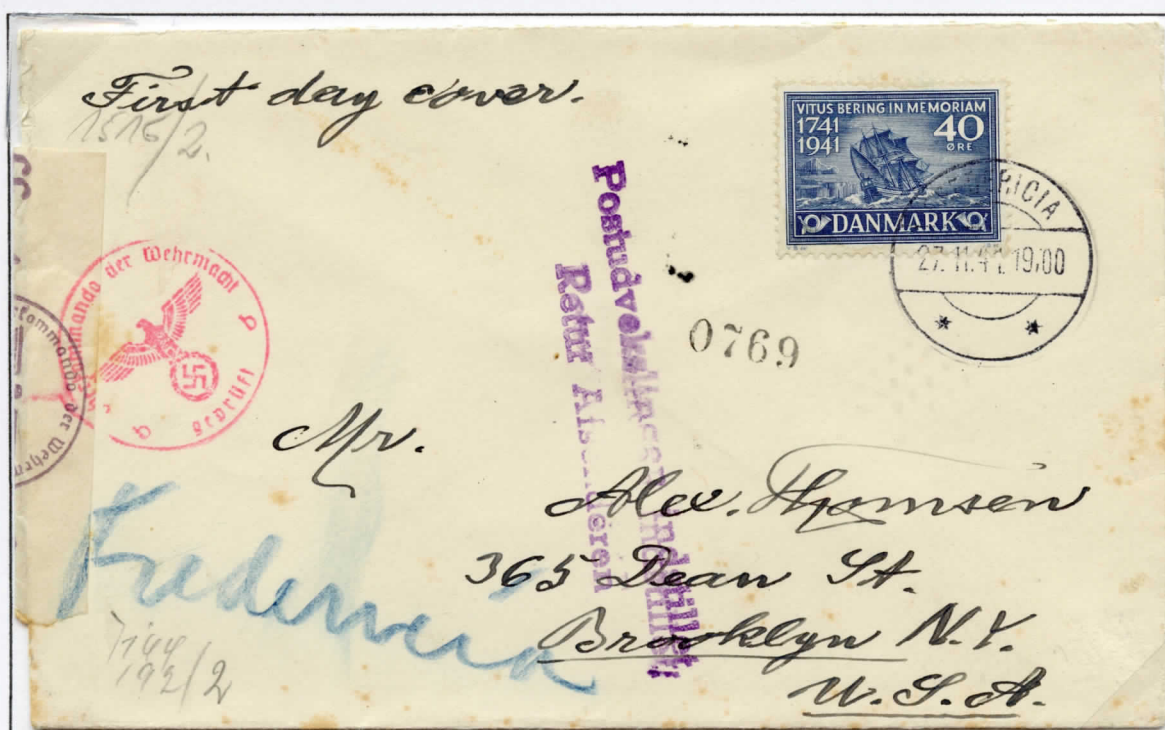 First day cover.
1516/2.
VITUS BERING IN MEMORIAM
1741
1941
40
ØRE
DANMARK
RICIA
27.11.41.19.00
Postudvekslingen indstillet,
Retur Afsenderen
0769
mmando der Wehrmacht
Geprüft
kommando der Wehrm
Mr.
Alex. Thomsen
365 Dean St.
Brooklyn N.Y.
U.S.A.
192/2